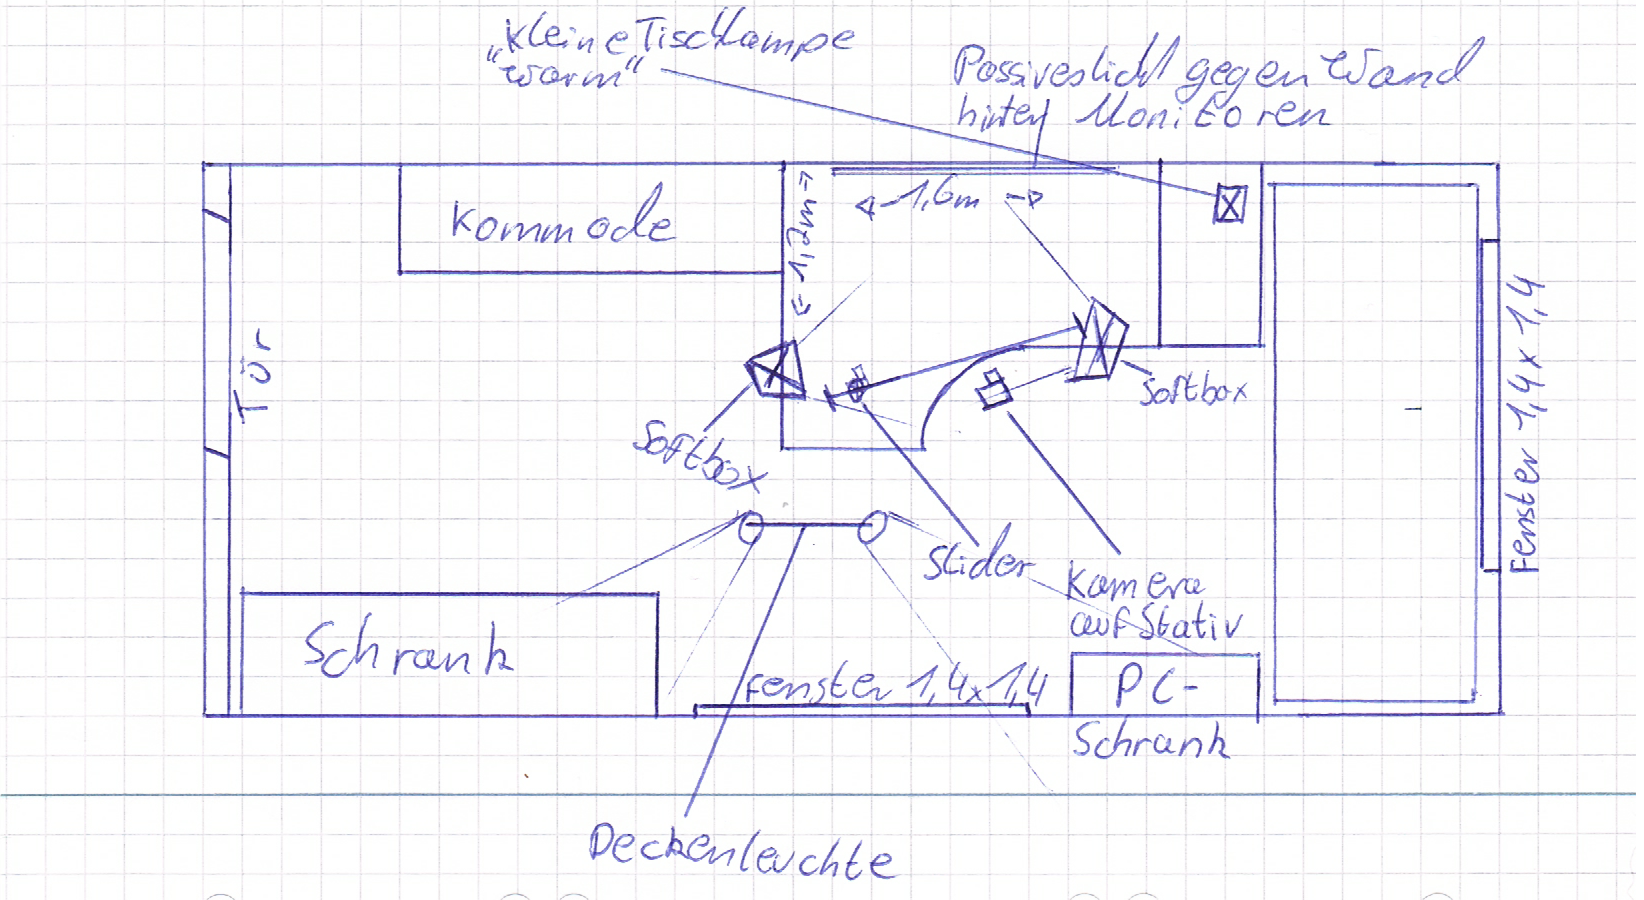 „kleine Tischlampe
"warm"
Passiveslicht gegen Wand
hinter Monitoren
Kommode
<-1,6m->
<-1,2m->
Tür
Softbox
Softbox
Slider
Kamera
auf Stativ
Fenster 1,4x1,4
Schrank
Fenster 1,4x1,4
PC-
Schrank
Deckenleuchte